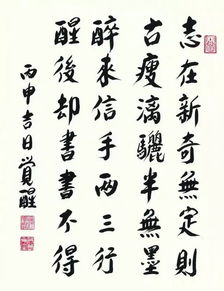 志在新奇無定則
古瘦漓驪半無墨
醉來信手兩三行
醒後却書書不得
丙申吉日覺醒